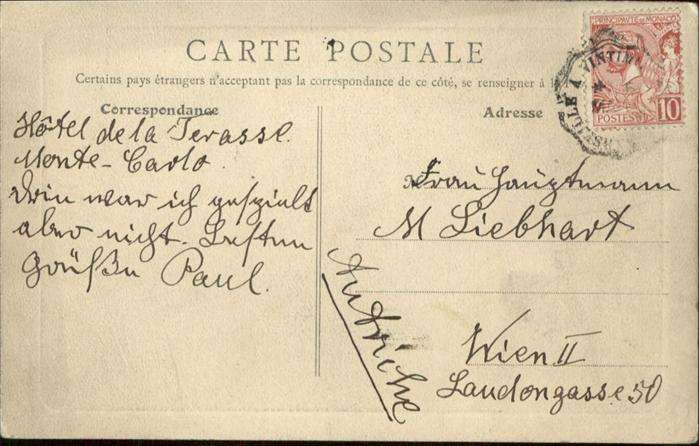 CARTE POSTALE
Certains pays étrangers n'acceptant pas la correspondance de ce côté, se renseigner à
Correspondance
Hôtel de la Terasse.
Monte-Carlo.
war ich gespielt
aber nicht. Besten
Grüßen Paul.
Adresse
Frau Hauptmann
M Liebhart
Wien II
Laudongasse 50
Autriche
PRINCIPAUTÉ DE MONACO
POSTES 10
A VINTIM